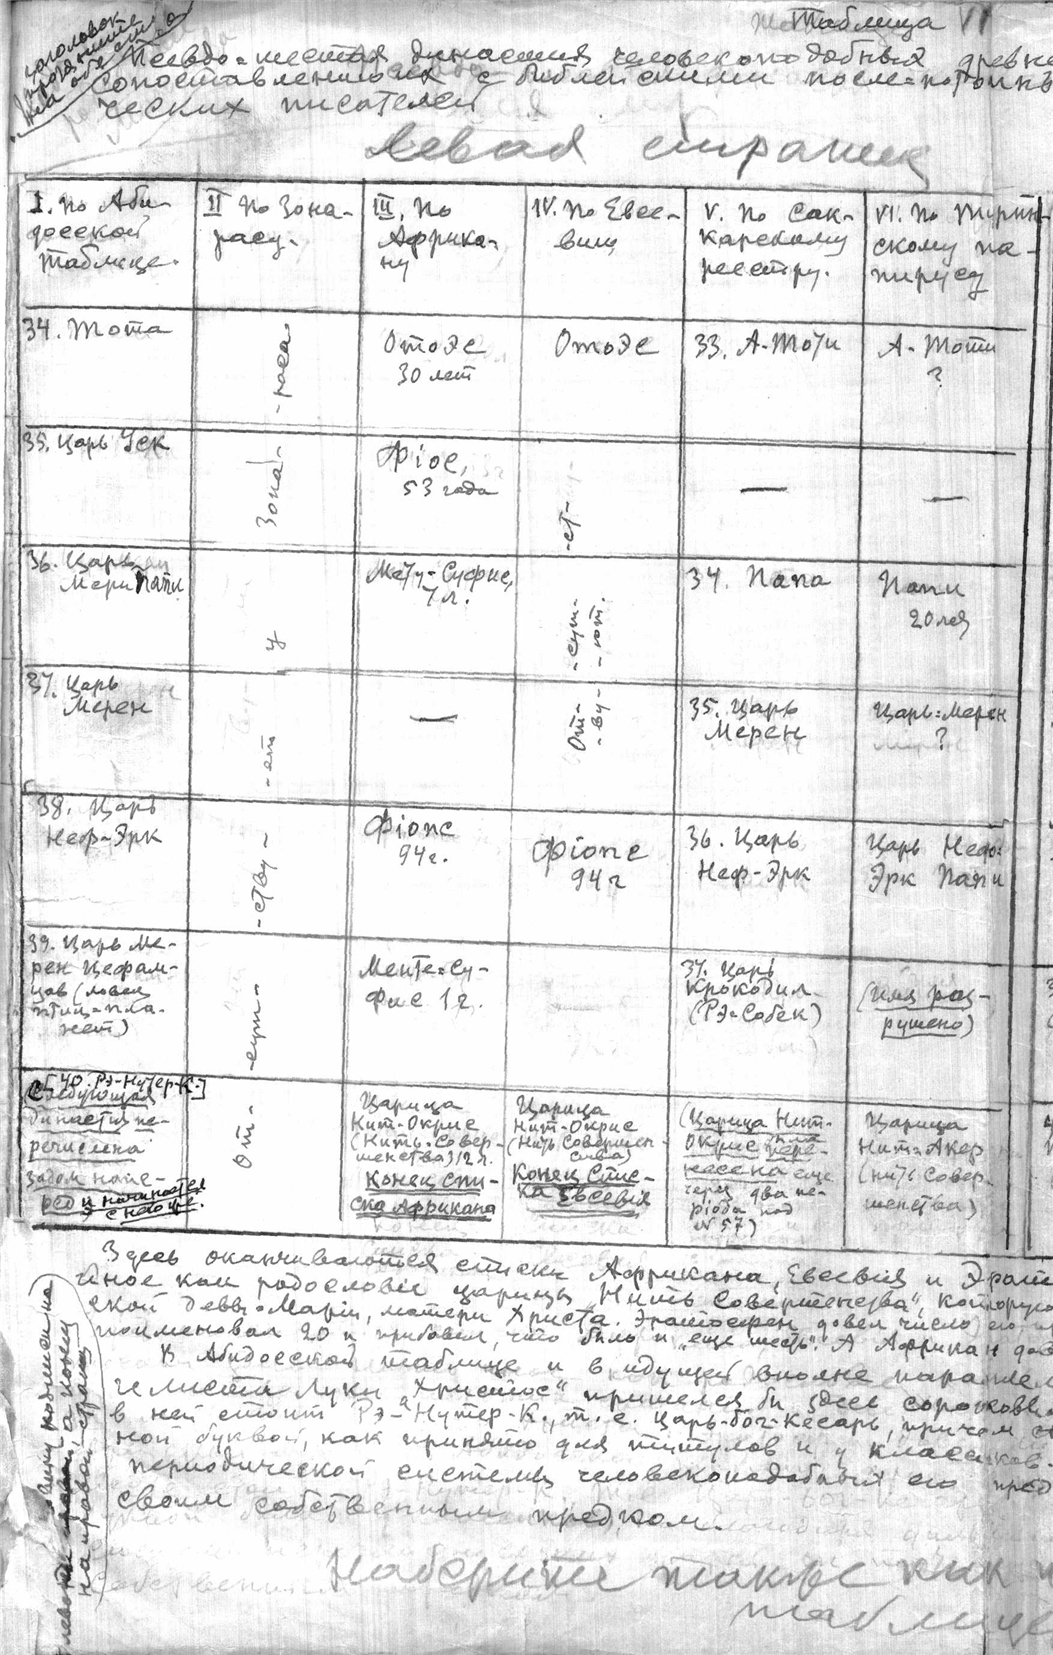 Таблица VI
заголовок
протяните
на обе стр.
Псевдо-шестая династия человекоподобных древне
сопоставлению их с библейскими после-потопны
ческих писателей
Левая страниц
I. По Аби-
досской
таблице.
II По Зона-
расу.
III. По
Африка-
ну
IV. По Евсе-
вию
V. По Сак-
карскому
реестру.
VI. По Турин-
скому па-
пирусу
34. Тота
Отоэс
30 лет
Отоэс
33. А-Тоти
А-Тоти
?
35. Царь Уск
Фіос,
53 года
—
—
36. Царь
Мери Папи
Мету-Суфис,
7 л.
34. Папа
Папи
20 лет
37. Царь
Мерен
—
35. Царь
Мерен
Царь-Мерен
?
38. Царь
Неф-Эрк
Фіопс
94 г.
Фіопс
94 г
36. Царь
Неф-Эрк
Царь Неф-
Эрк Папи
39. Царь Ме-
рен Цефам-
цав (ловец
птиц-пла-
нет)
Менте-Су-
фис 1 г.
37. Царь
Крокодил
(Рэ-Собек)
(имя раз-
рушено)
[40. Рэ-Нутер-К.]
Следующая
династия пе-
речислена
задом напе-
ред и начинается
с нея же.
Царица
Нит-Окрис
(Нить-Совер-
шенства) 12 л.
Конец спи-
ска Африкана
Царица
Нит-Окрис
(Нить Совершен-
ства)
Конец спис-
ка Евсевія
(Царица Нит-
Окрис пере-
несена еще
через два пе-
ріода под
№ 57)
Царица
Нит-Акер
(нить Совер-
шенства)
От-
-сут-
-ству-
-ет
у
Зона-
-раса
От- -сут- -ст-
-ву- -ют.
Здесь оканчиваются списки Африкана, Евсевія и Эрат
иное как родословіе царицы „Нить Совершенства“, котору
ской Девы-Маріи, матери Христа. Эратосфен довел число его
поименовал 20 и прибавил, что было и „еще шесть“. А Африкан до
В Абидосской таблице и в идущей вполне паралле
гелиста Луки „Христос“ пришелся бы здесь сороковы
в ней стоит Рэ-Нутер-К., т. е. царь-бог-кесарь, причем
ной буквой, как принято для титулов и у классиков.
періодической системы человекоподобных его пред
своим собственным предком.
Наберите также как
таблице
левой
на правой странице